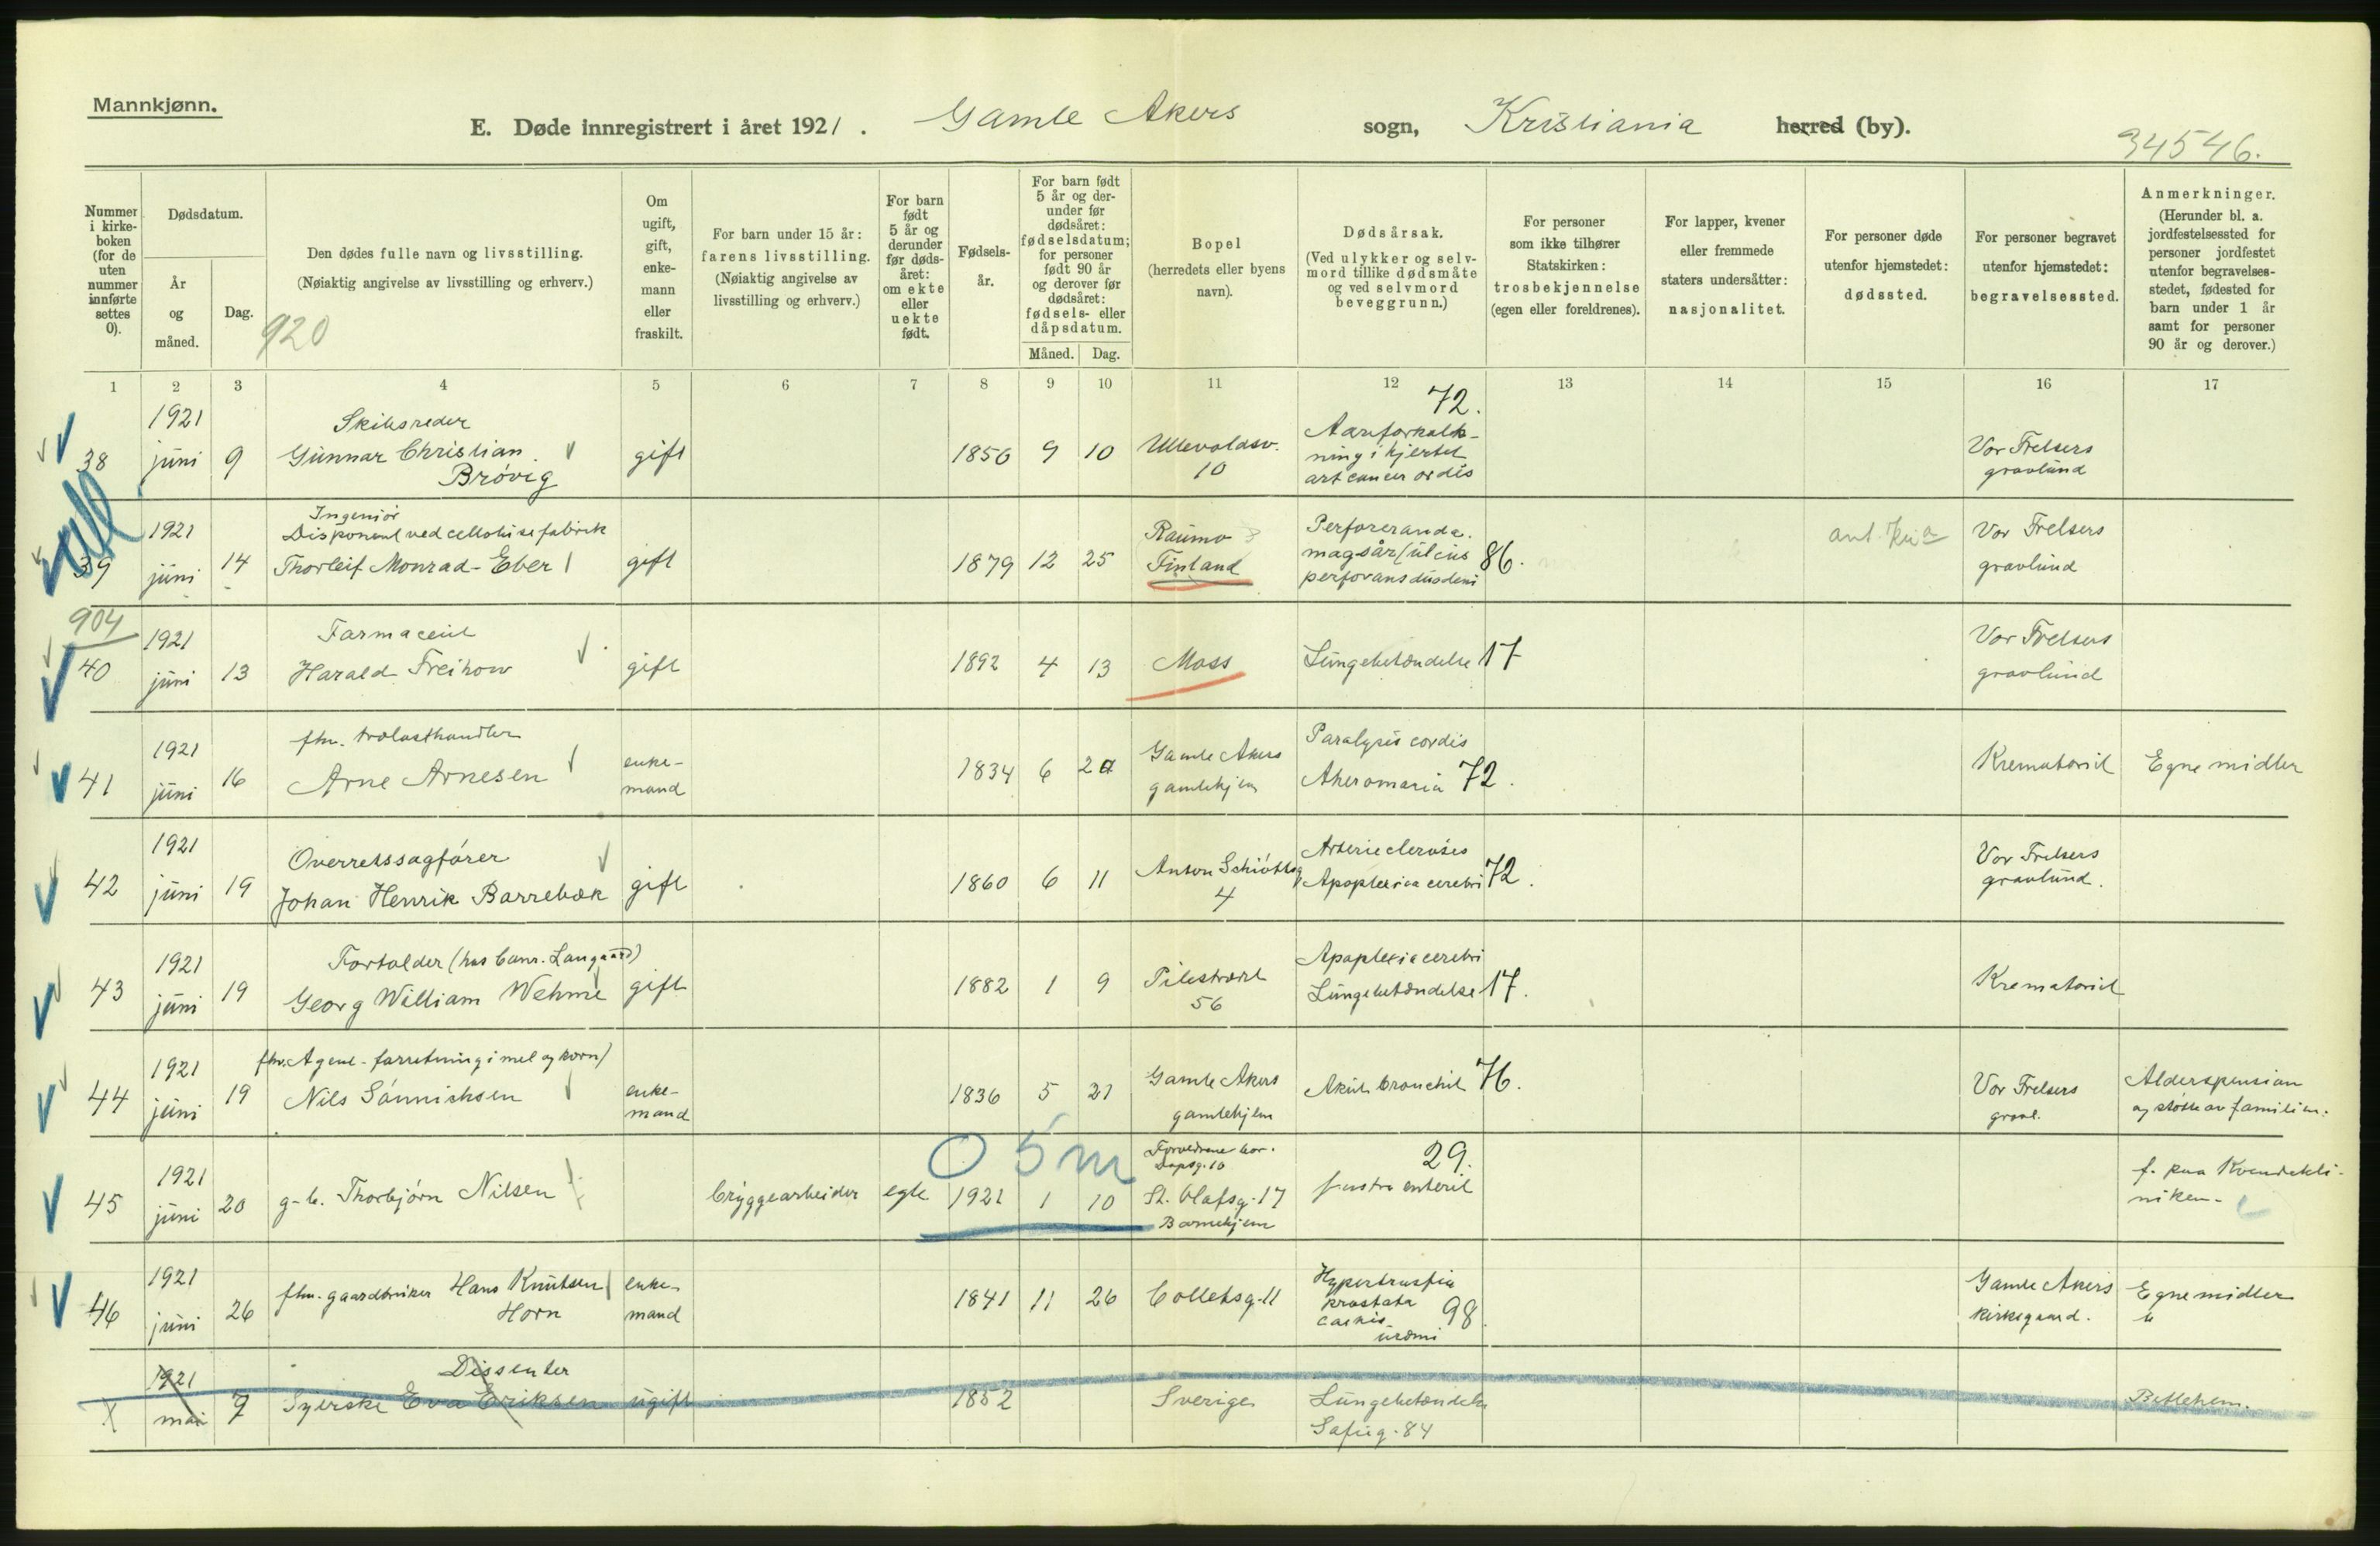 Mannkjønn.
E. Døde innregistrert i året 1921. Gamle Akers sogn, Kristiania herred (by).
34546.
Nummer i kirke-boken (for de uten nummer innførte settes 0).
Dødsdatum.
År og måned.
Dag.
Den dødes fulle navn og livsstilling.
(Nøiaktig angivelse av livsstilling og erhverv.)
920
Om ugift, gift, enke-mann eller fraskilt.
For barn under 15 år: farens livsstilling.
(Nøiaktig angivelse av livsstilling og erhverv.)
For barn født 5 år og derunder før døds-året: om ekte eller uekte født.
Fødsels-år.
For barn født 5 år og der-under før dødsåret: fødselsdatum; for personer født 90 år og derover før dødsåret: fødsels- eller dåpsdatum.
Måned. Dag.
Bopel (herredets eller byens navn).
Dødsårsak.
(Ved ulykker og selv-mord tillike dødsmåte og ved selvmord beveggrunn.)
For personer som ikke tilhører Statskirken: trosbekjennelse (egen eller foreldrenes).
For lapper, kvener eller fremmede staters undersåtter: nasjonalitet.
For personer døde utenfor hjemstedet: dødssted.
For personer begravet utenfor hjemstedet: begravelsessted.
Anmerkninger.
(Herunder bl. a. jordfestelsessted for personer jordfestet utenfor begravelses-stedet, fødested for barn under 1 år samt for personer 90 år og derover.)
1 2 3 4 5 6 7 8 9 10 11 12 13 14 15 16 17
38 1921 juni 9 Skibsreder Gunnar Christian Brövig gift 1856 9 10 Ullevoldsv. 10 72. Aareforkalk-ning i hjertet Vor Frelsers gravlund
39 1921 juni 14 Ingeniör Disponent ved cellulosefabrik Thorleif Monrad-Eber gift 1879 12 25 Raumo Finland magsår (ulcus perforans duodeni 86. Vor Frelsers gravlund
904
40 1921 juni 13 Farmaceut Harald Freihow gift 1892 4 13 Moss Lungebetændelse 17 Vor Frelsers gravlund
41 1921 juni 16 fhv. trælasthandler Arne Arnesen enke-mand 1834 6 20 Gamle Akers gamlehjem Paralysis cordis 72. Krematoriet Egne midler
42 1921 juni 19 Overretssagfører Johan Henrik Barrebæk gift 1860 6 11 Anton Schiøttsg 4 Apoplexia cerebri 72. Vor Frelsers gravlund.
43 1921 juni 19 Forvalder (hos Langaard) Georg William Wehme gift 1882 1 9 Pilestrædet 56 Apoplexia cerebri Lungebetændelse 17. Krematoriet
44 1921 juni 19 fhv. Agent-forretning i mel og korn) Nils Sönnichsen enke-mand 1836 5 21 Gamle Akers gamlehjem Akut bronchit 76. Vor Frelsers gravl. Alderspension og støtte av familien.
0 5 m
45 1921 juni 20 g-b. Thorbjørn Nilsen bryggearbeider egte 1921 1 10 Forældrene bor. Dopsg. 10 St. Olafsg. 17 Barnehjem 29. enterit f. paa Kvindekli-niken.
46 1921 juni 26 fhv. gaardbruker Hans Knutsen Horn enke-mand 1841 11 26 Colletsg. 11 prostata uræmi 98. Gamle Akers kirkegaard. Egne midler
X 1921 mai 7 Dissenter Syerske Eva Eriksen ugift 1852 Sverige Lungebetændelse Sofieg. 84 Betlehem.